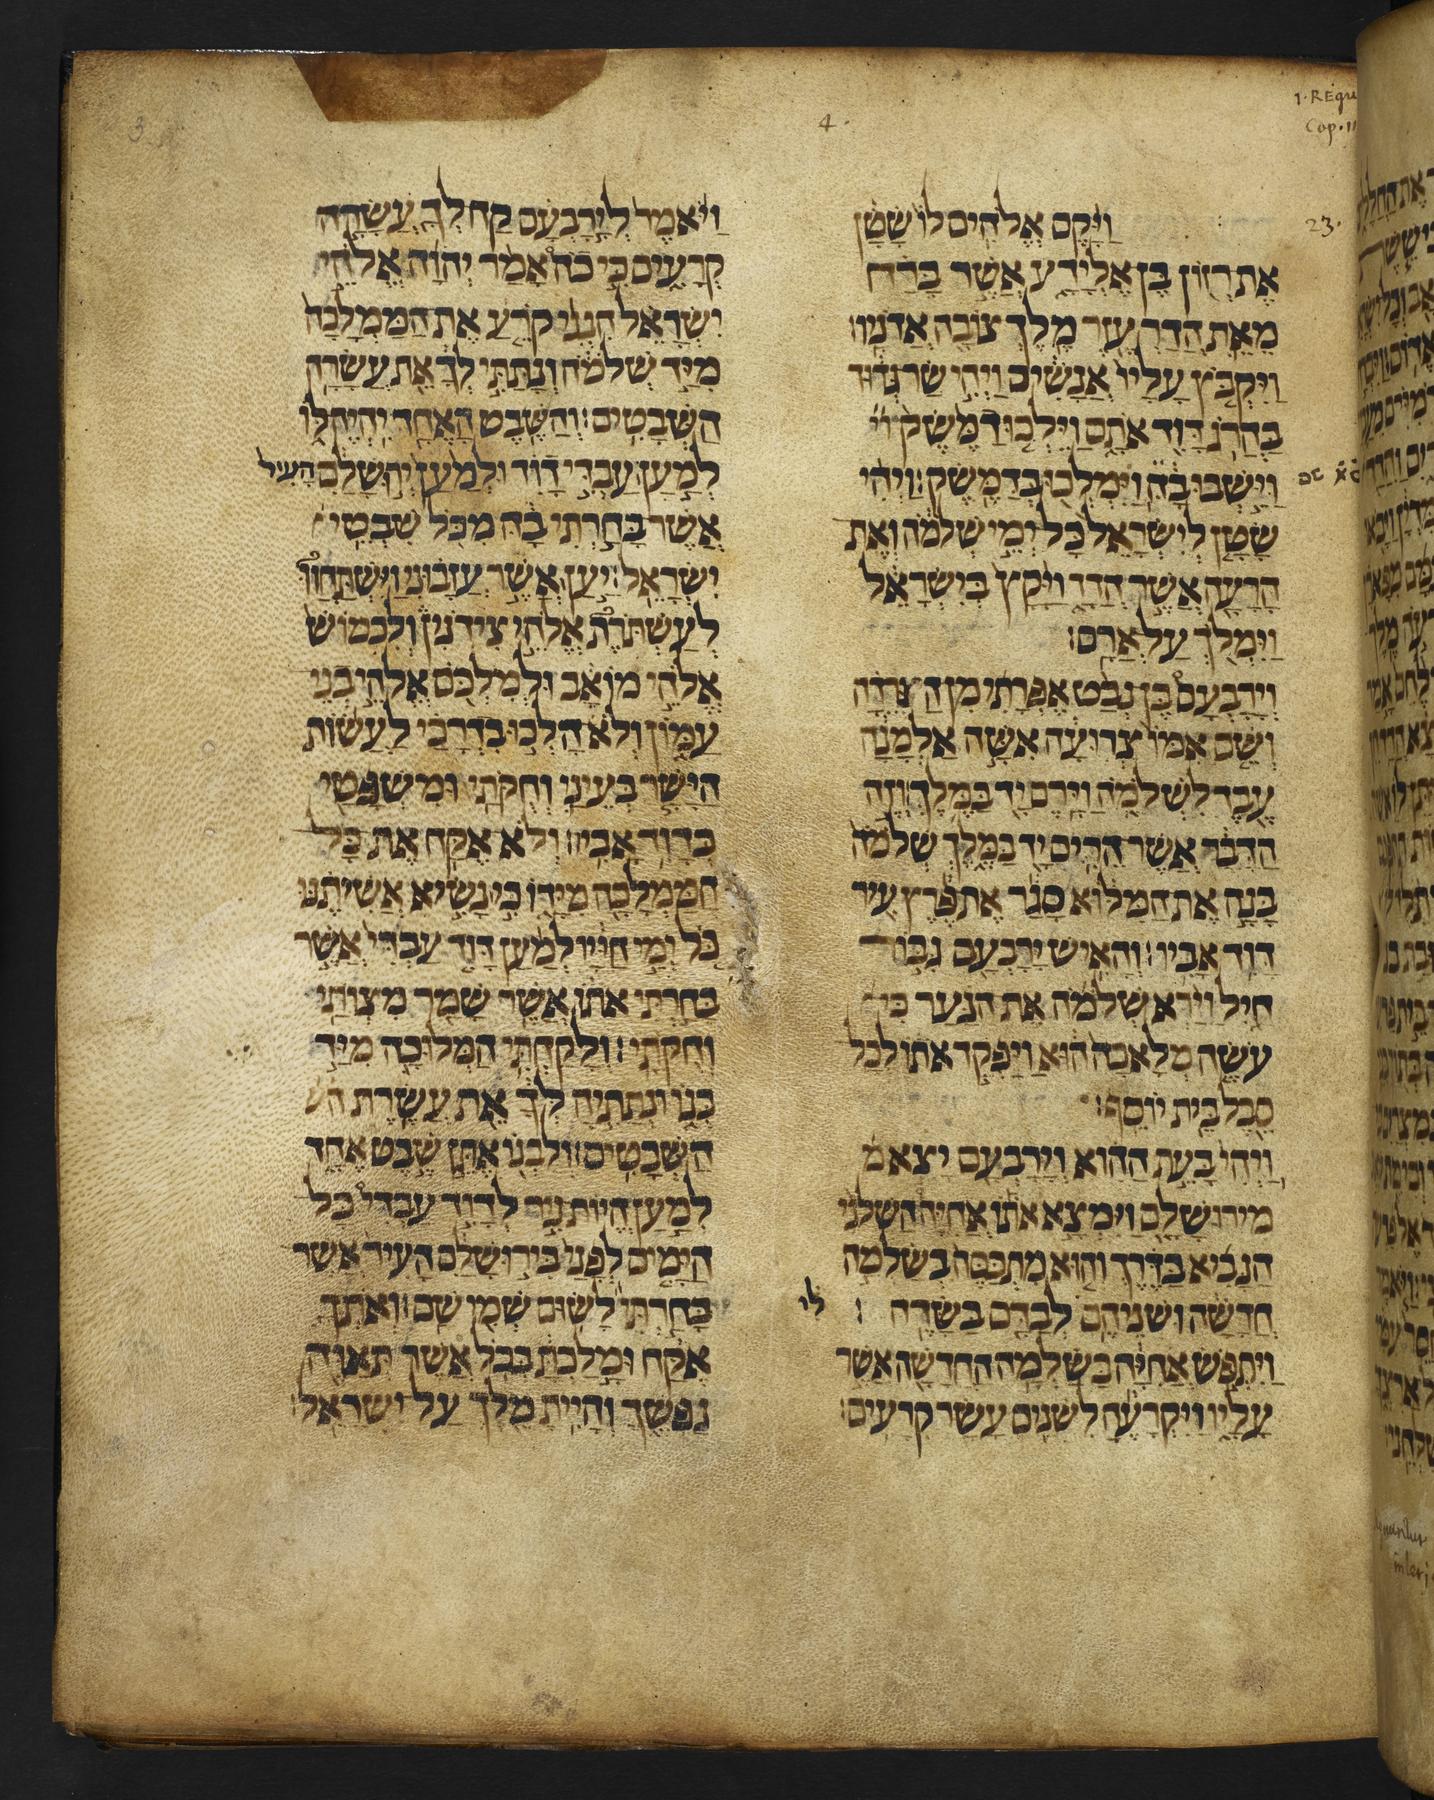 3
4.
1. Regu
Cap. 11
23.
ויקם אלהים לו שטן
את רזון בן אלידע אשר ברח
מאת הדרעזר מלך צובה אדניו
ויקבץ עליו אנשים ויהי שר גדוד
בהרג דוד אתם וילכו דמשק וי
וישבו בה וימלכו בדמשק׃ ויהי
שטן לישראל כל ימי שלמה ואת
הרעה אשר הדד ויקץ בישראל
וימלך על ארם׃
וירבעם בן נבט אפרתי מן הצרדה
ושם אמו צרועה אשה אלמנה
עבד לשלמה וירם יד במלך׃ וזה
הדבר אשר הרים יד במלך שלמה
בנה את המלוא סגר את פרץ עיר
דוד אביו׃ והאיש ירבעם גבור
חיל וירא שלמה את הנער כי
עשה מלאכה הוא ויפקד אתו לכל
סבל בית יוסף׃
ויהי בעת ההוא וירבעם יצא מ
מירושלם וימצא אתו אחיה השלני
הנביא בדרך והוא מתכסה בשלמה
חדשה ושניהם לבדם בשדה ׃
ויתפש אחיה בשלמה החדשה אשר
עליו ויקרעה לשנים עשר קרעים׃
ויאמר לירבעם קח לך עשרה
קרעים כי כה אמר יהוה אלהי
ישראל הנני קרע את הממלכה
מיד שלמה ונתתי לך את עשרה
השבטים׃ והשבט האחד יהיה לו
למען עבדי דוד ולמען ירושלם העיר
אשר בחרתי בה מכל שבטי
ישראל׃ יען אשר עזבוני וישתחוו
לעשתרת אלהי צידנין ולכמוש
אלהי מואב ולמלכם אלהי בני
עמון ולא הלכו בדרכי לעשות
הישר בעיני וחקתי ומשפטי
כדוד אביו׃ ולא אקח את כל
הממלכה מידו כי נשיא אשיתנו
כל ימי חייו למען דוד עבדי אשר
בחרתי אתו אשר שמר מצותי
וחקתי׃ ולקחתי המלוכה מיד
בנו ונתתיה לך את עשרת הש
השבטים׃ ולבנו אתן שבט אחד
למען היות ניר לדויד עבדי כל
הימים לפני בירושלם העיר אשר
בחרתי לשום שמי שם׃ ואתך
אקח ומלכת בכל אשר תאוה
נפשך והיית מלך על ישראל׃